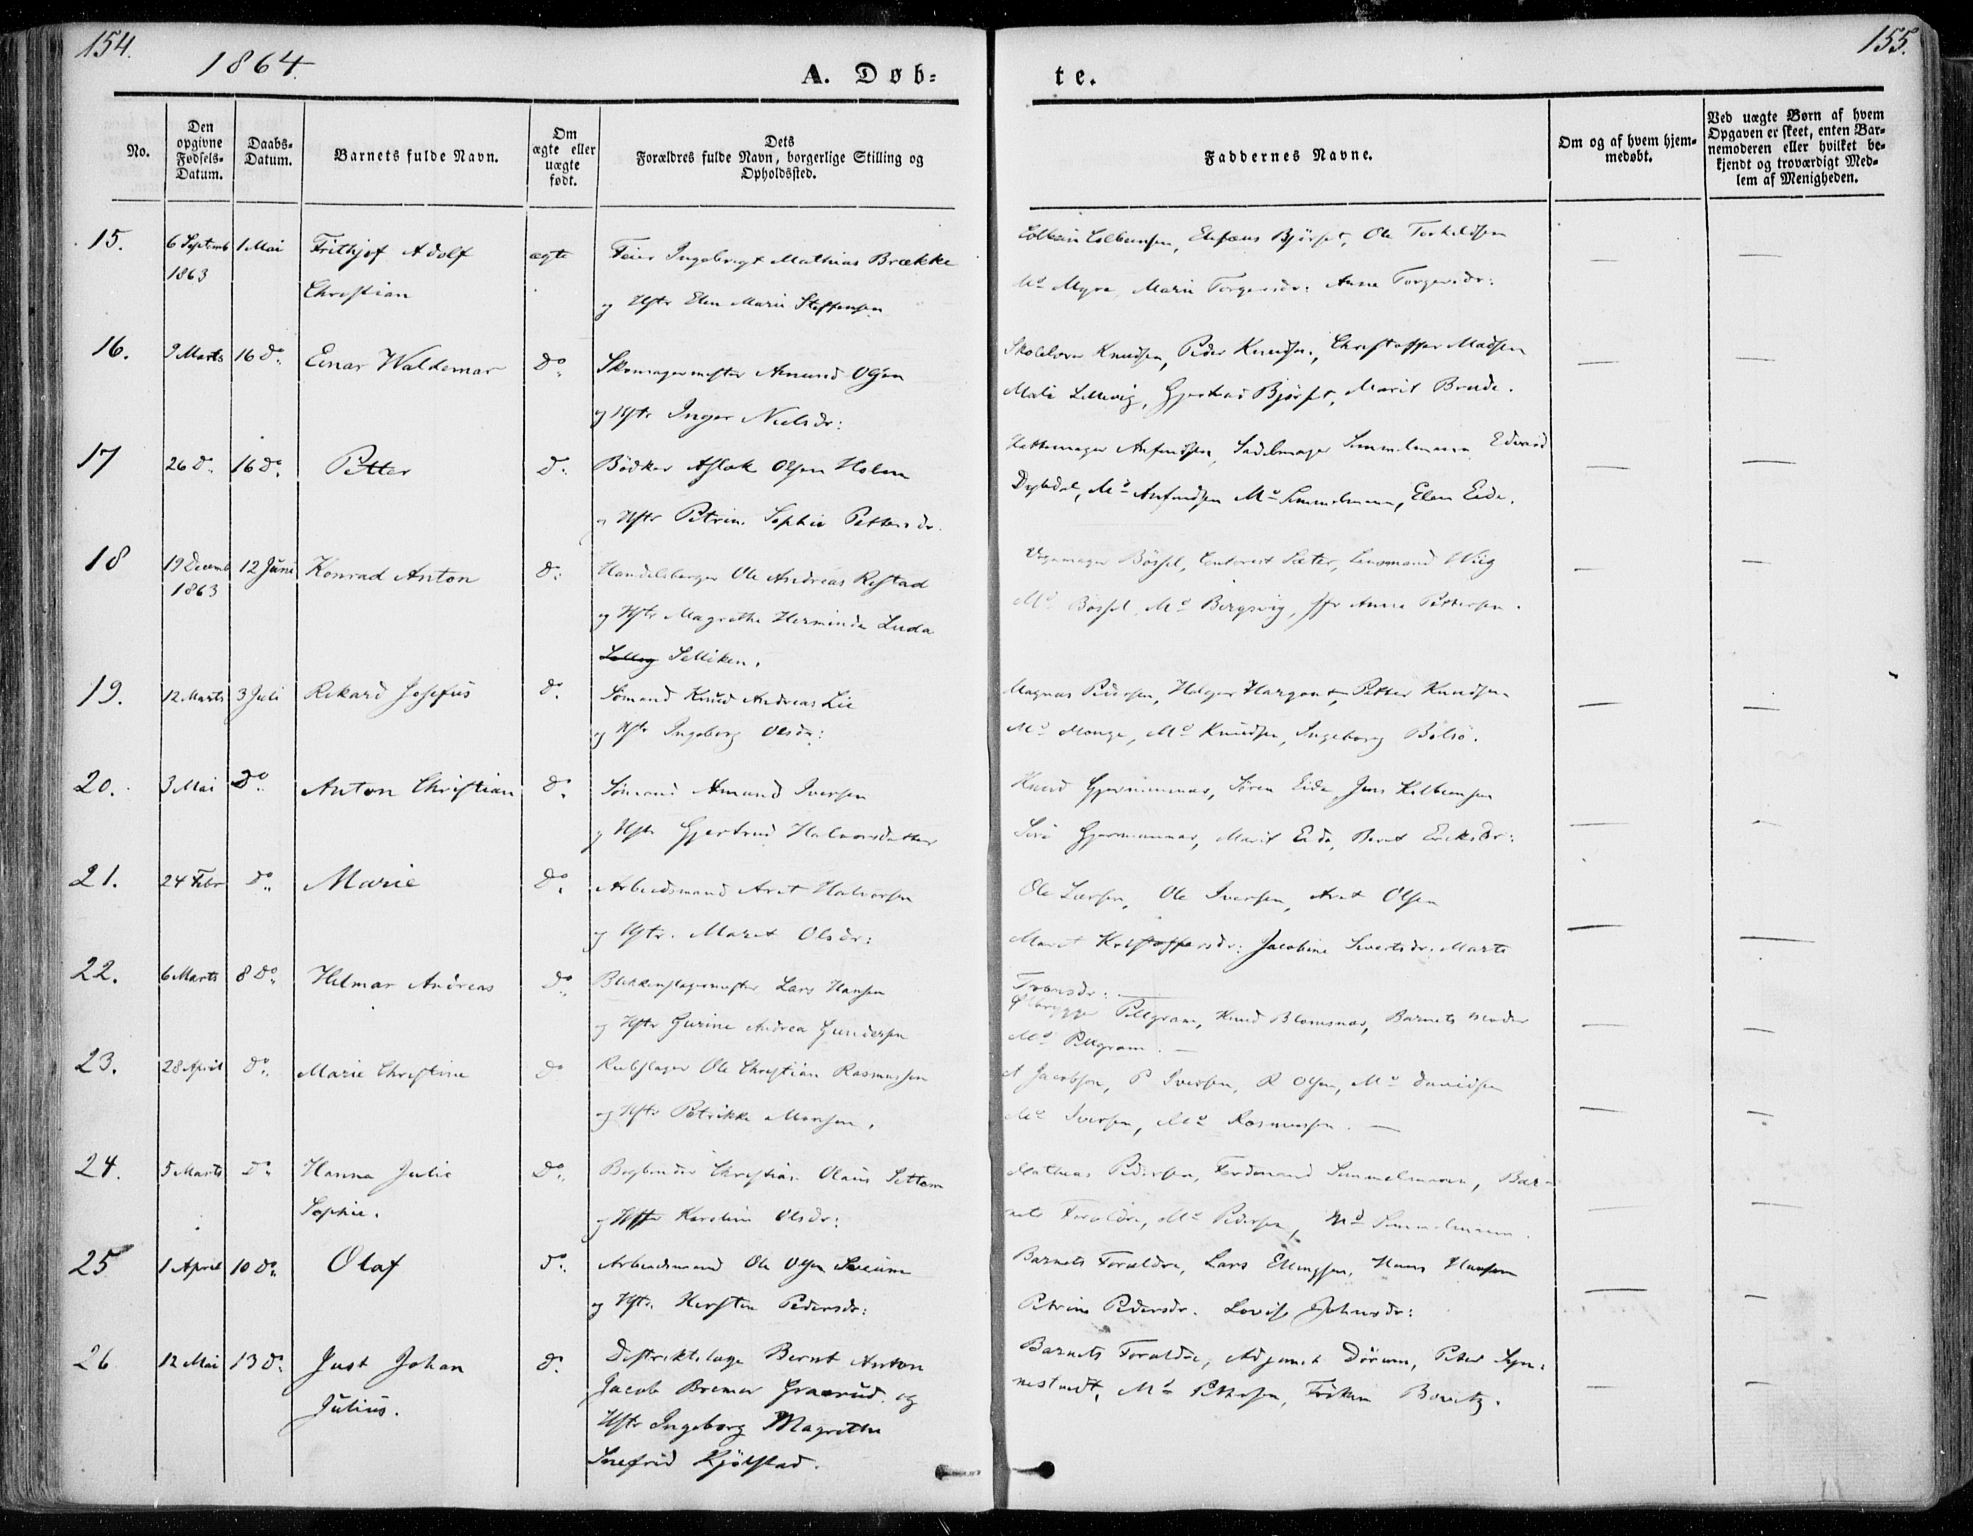 154.
1864.
A. Døb=
te.
155.
No.
Den opgivne Fødsels-Datum.
Daabs-Datum.
Barnets fulde Navn.
Om ægte eller uægte født.
Dets
Forældres fulde Navn, borgerlige Stilling og
Opholdssted.
Faddernes Navne.
Om og af hvem hjem-
medøbt.
Ved uægte Børn af hvem
Opgaven er skeet, enten Bar-
nemoderen eller hvilket be-
kjendt og troværdigt Med-
lem af Menigheden.
15. 6 Septemb 1 Mai Frithjof Adolf ægte Feier Ingebrigt Mathias Brække
1863 Christian og Hstr Elen Marie Steffensen
Ole Torkildsen
Md Myre, Marie Torgersdr: Anne Torgersdr:
16. 9 Marts 16 Do Einar Waldemar Do Skomagermester Amund Olsen
og Hstr Inger Nielsdr:
Skolelærer Knudsen, Peder Knudsen, Christoffer Madsen
Bjørset, Marit Brude.
17 26 D. 16 Do. Petter D: Bødker Aslak Olsen Holm
og Hstr Petrine Sophie Pettersdr.
Hattemager Anfindsen, Sadelmager Simmelmann Edvard
Dybdal, Md Anfindsen Md Simmelmann, Elen Eide.
18 19 Decemb 12 Juni Konrad Anton D: Handelsborger Ole Andreas Restad
1863 og Hstr Magrethe Herminda Luda
Selliken.
Bøssel, Sæter, Lensmand Wiig
Md Bøssel, Md Bergsvig, Jfr Anne Pettersen.
19. 12 Marts 3 Juli Rikard Josefus D. Sømand Knud Andreas Lie
og Hstr Ingeborg Olsdr:
Magnus Pedersen, Holger Petter Knudsen
Md Monge, Md Knudsen, Ingeborg Bolsø.
20. 3 Mai Do. Anton Christian D. Sømand Amund Iversen
og Hstr Gjertrud Halvorsdatter
Knud Gjermunnæs, Søren Eide, Jens Kolbensen
Siri Gjermunnæs, Marit Eide, Beret Ericksdr:
21. 24 Febr Do. Marie Do. Arbeidsmand Arnt Halvorsen
og Hstr. Maret Olsdr:
Ole Larsen, Ole Iversen, Arnt Olsen
Marit Kristoffersdr: Jacobine Sivertsdr: Marte
22. 6 Marts 8 Do. Hilmar Andreas Do. Blikkenslagermester Lars Hansen
og Hstr Gurine Andrea Gundersen
Tronsdr:
Ølbrygger Pillgram, Knud Blomsnæs, Barnets moder
Md Pillgram.
23. 28 April D. Marie Christine Do Rebslager Ole Christian Rasmussen
og Hstr Petrikke Monsen.
A Jacobsen, P Iversen, R Olsen, Md Davidsen
Md Iversen, Md Rasmussen.
24. 5 Marts Do Hanna Julie Do. Bogbinder Christian Olaus Settem
Sophie. og Hstr Karoline Olsdr:
Mathias Pedersen, Ferdinand Simmelmann, Bar-
nets Forældre, Md Pedersen, Md Simmelmann.
25 1 April 10 Do. Olaf D. Arbeidsmand Ole Olsen Sveium
og Hstr. Kirsten Pedersdr:
Barnets Forældre, Lars Ellingsen, Hans Hansen
Petrine Pedersdr. Lovise Johnsdr:
26 12 Mai 13 Do. Just Johan D. Distriktslæge Bernt Anton
Julius. Jacob Bremer Graarud. og
Hstr Ingeborg Magrethe
Snefrid Kjølstad.
Barnets Forældre, Adjunct Dørum, Peter Syn=
nestvedt, Md Pettersen, Frøken